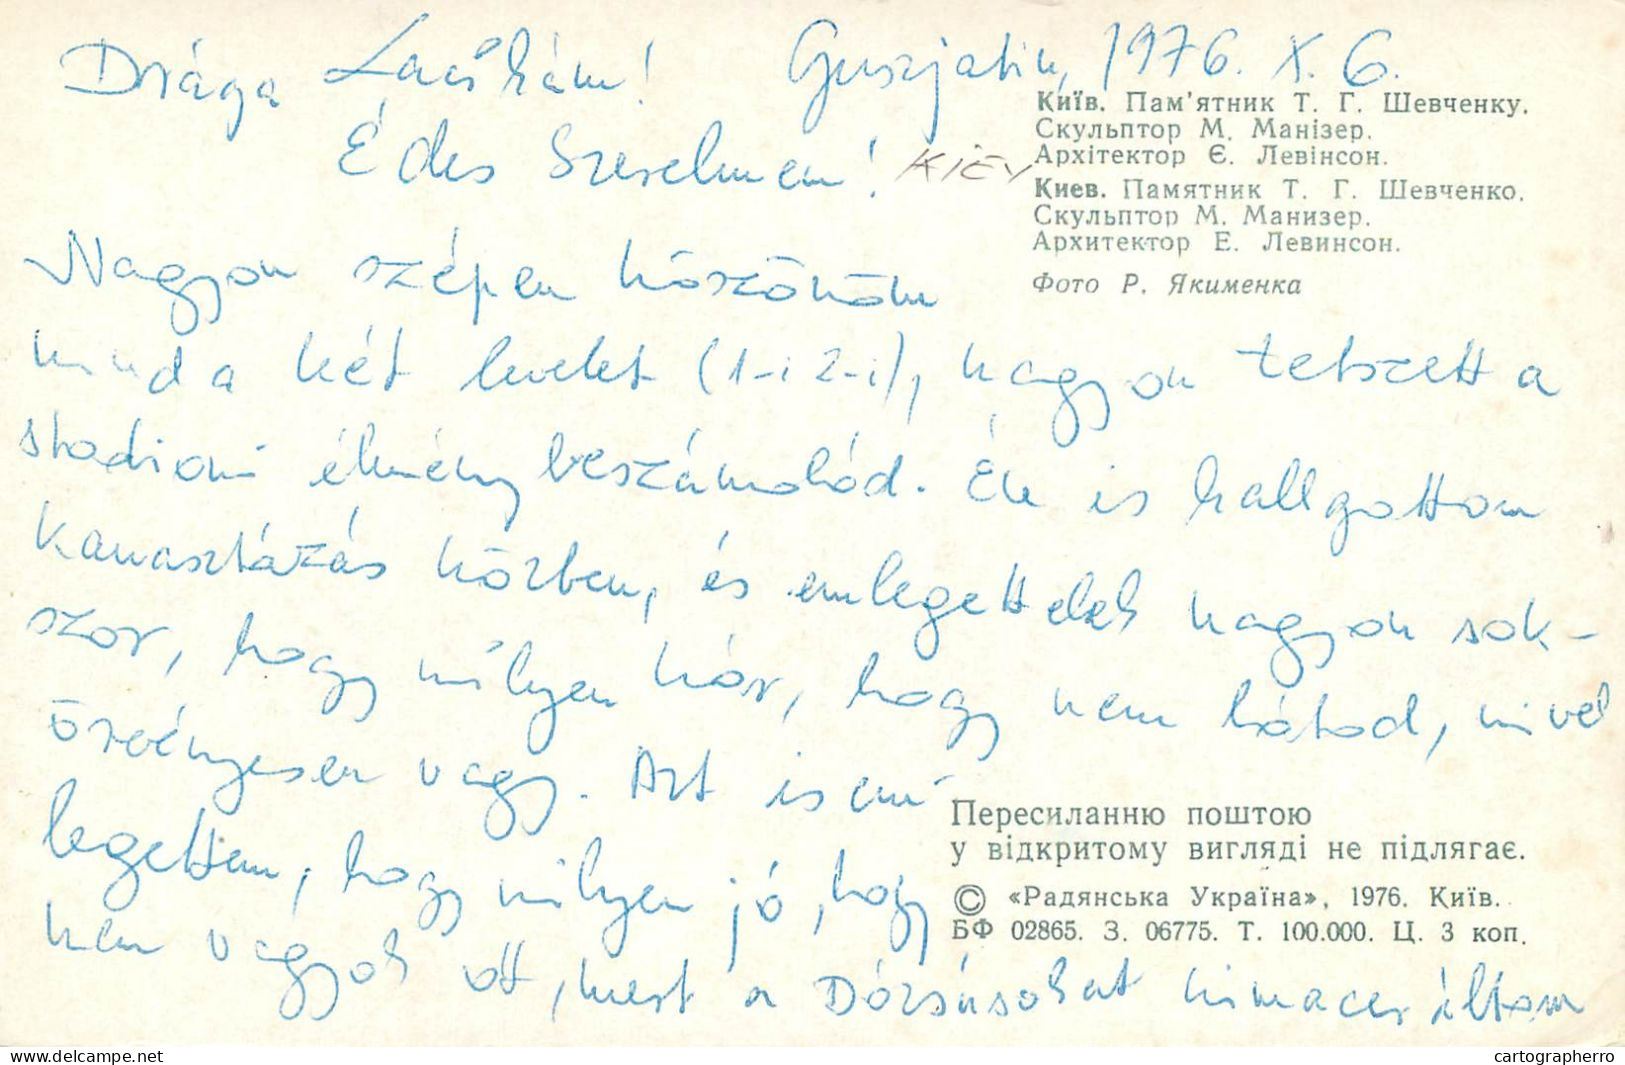 Drága Lacikám! Guszjatin, 1976. X. 6.
Édes Szerelmem! KIEV
Київ. Пам'ятник Т. Г. Шевченку.
Скульптор М. Манізер.
Архітектор Є. Левінсон.
Киев. Памятник Т. Г. Шевченко.
Скульптор М. Манизер.
Архитектор Е. Левинсон.
Фото Р. Якименка
Nagyon szépen köszönöm
mind a két levelet (1-i 2-i), nagyon tetszett a
stadioni élmény beszámolód. Én is hallgattam
Kanasztázás közben, és emlegettelek nagyon sok-
szor, hogy milyen kár, hogy nem látod, mivel
örvényesen vagy. Azt is em-
legettem, hogy milyen jó, hogy
nem vagyok ott, mert a Dózsásokat
Пересиланню поштою
у відкритому вигляді не підлягає.
© «Радянська Україна», 1976. Київ.
БФ 02865. З. 06775. Т. 100.000. Ц. 3 коп.
www.delcampe.net
cartographerro